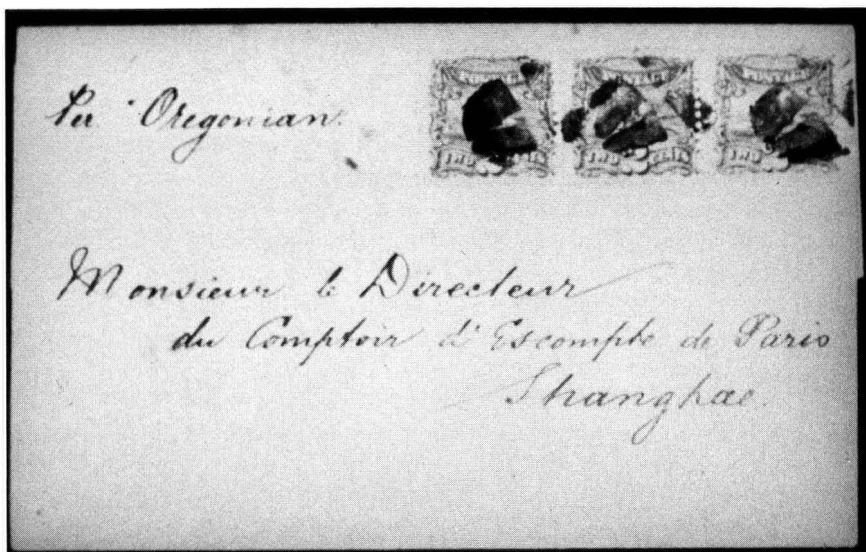 Per Oregonian.
TWO CENTS
Monsieur le Directeur
du Comptoir d'Escompte de Paris
Shanghae.